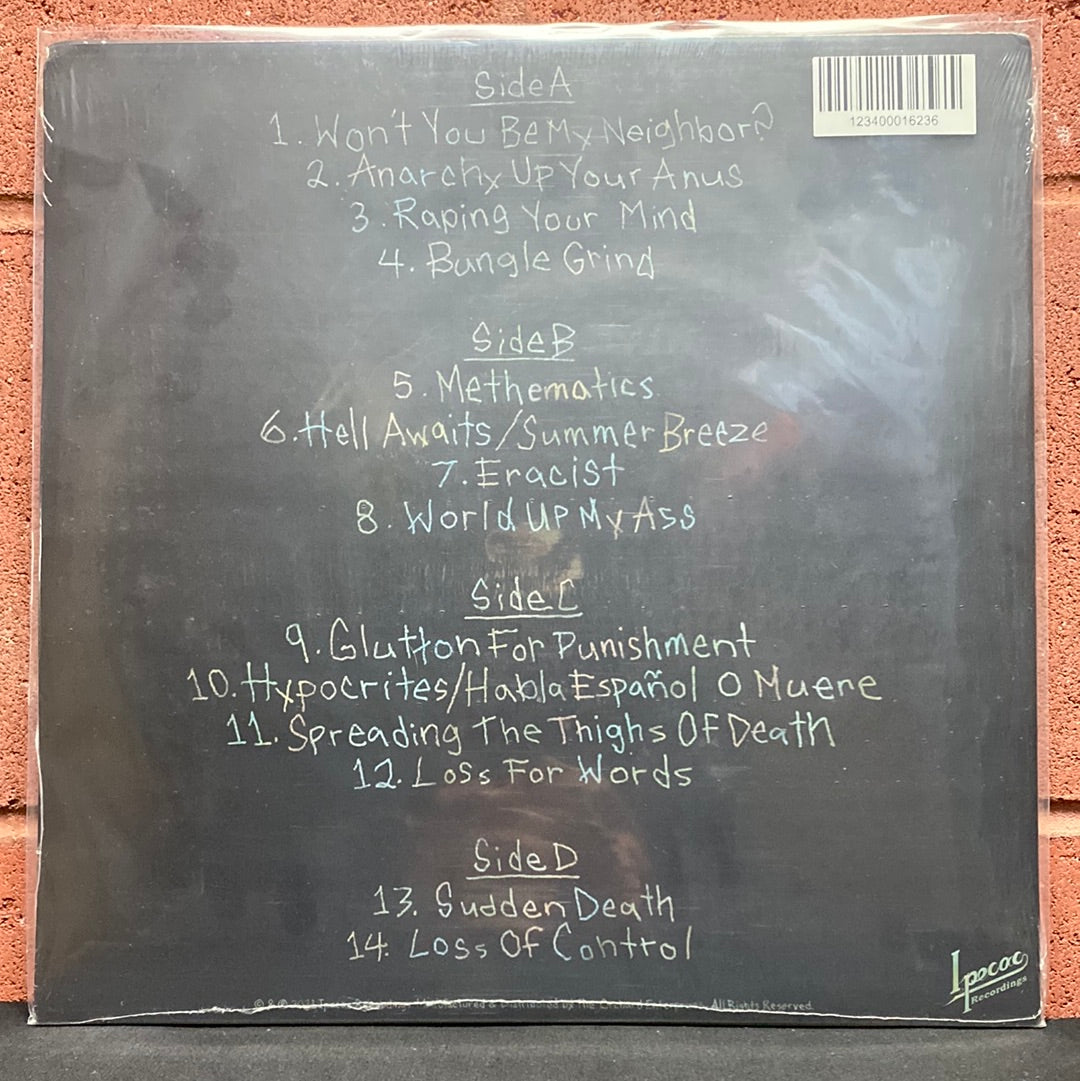 Side A
1. Won't You Be My Neighbor?
2. Anarchy Up Your Anus
3. Raping Your Mind
4. Bungle Grind
123400016236
Side B
5. Methematics
6. Hell Awaits/Summer Breeze
7. Eracist
8. World Up My Ass
Side C
9. Glutton For Punishment
10. Hypocrites/Habla Español O Muere
11. Spreading The Thighs Of Death
12. Loss For Words
Side D
13. Sudden Death
14. Loss Of Control
Ipecac
Recordings
© & ℗ & Distributed by The Orchard All Rights Reserved.